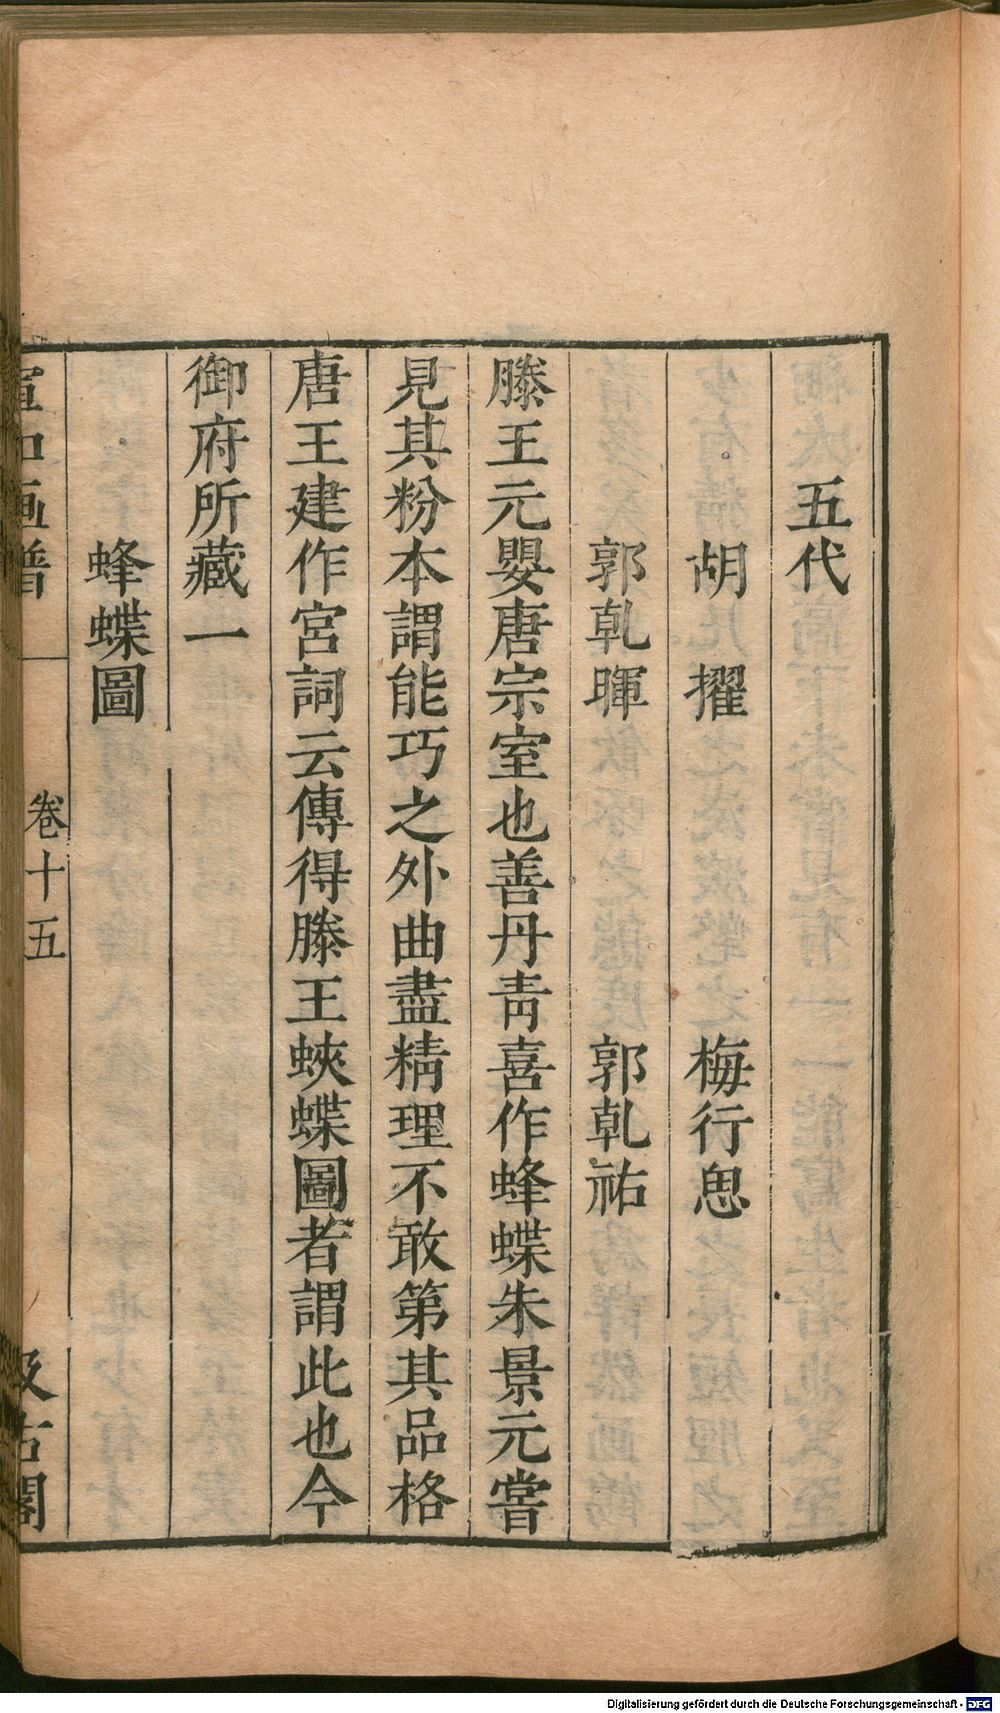 五代
胡擢 梅行思
郭乹暉 郭乹祐
滕王元嬰唐宗室也善丹青喜作蜂蝶朱景元嘗
見其粉本謂能巧之外曲盡精理不敢第其品格
唐王建作宮詞云傳得滕王蛺蝶圖者謂此也今
御府所藏一
蜂蝶圖
宣和画譜 卷十五 汲古閣
Digitalisierung gefördert durch die Deutsche Forschungsgemeinschaft - DFG